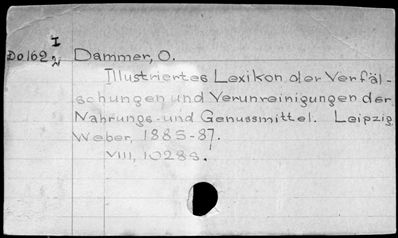 I
Do 162 N Dammer, O.
Illustriertes Lexikon der Verfäl-
schungen und Verunreinigungen der
Nahrungs- und Genussmittel. Leipzig,
Weber, 1885-87.
VIII, 1028s.